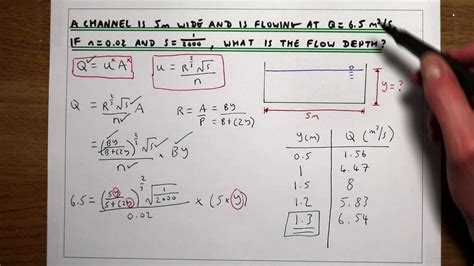 A CHANNEL IS 5m WIDE AND IS FLOWING AT Q = 6.5 m³/s
IF n = 0.02 AND S = 1/2000, WHAT IS THE FLOW DEPTH?
Q = u × A
u = R^(2/3) √S / n
Q = R^(2/3) √S / n A
R = A/P = By/(B+(2y))
y = ?
5m
= (By/(B+(2y)))^(2/3) √S / n × By
6.5 = (5y/(5+(2y)))^(2/3) √(1/2000) / 0.02 × (5×y)
y(m) Q (m³/s)
0.5 1.56
1 4.47
1.5 8
1.2 5.83
1.3 6.54